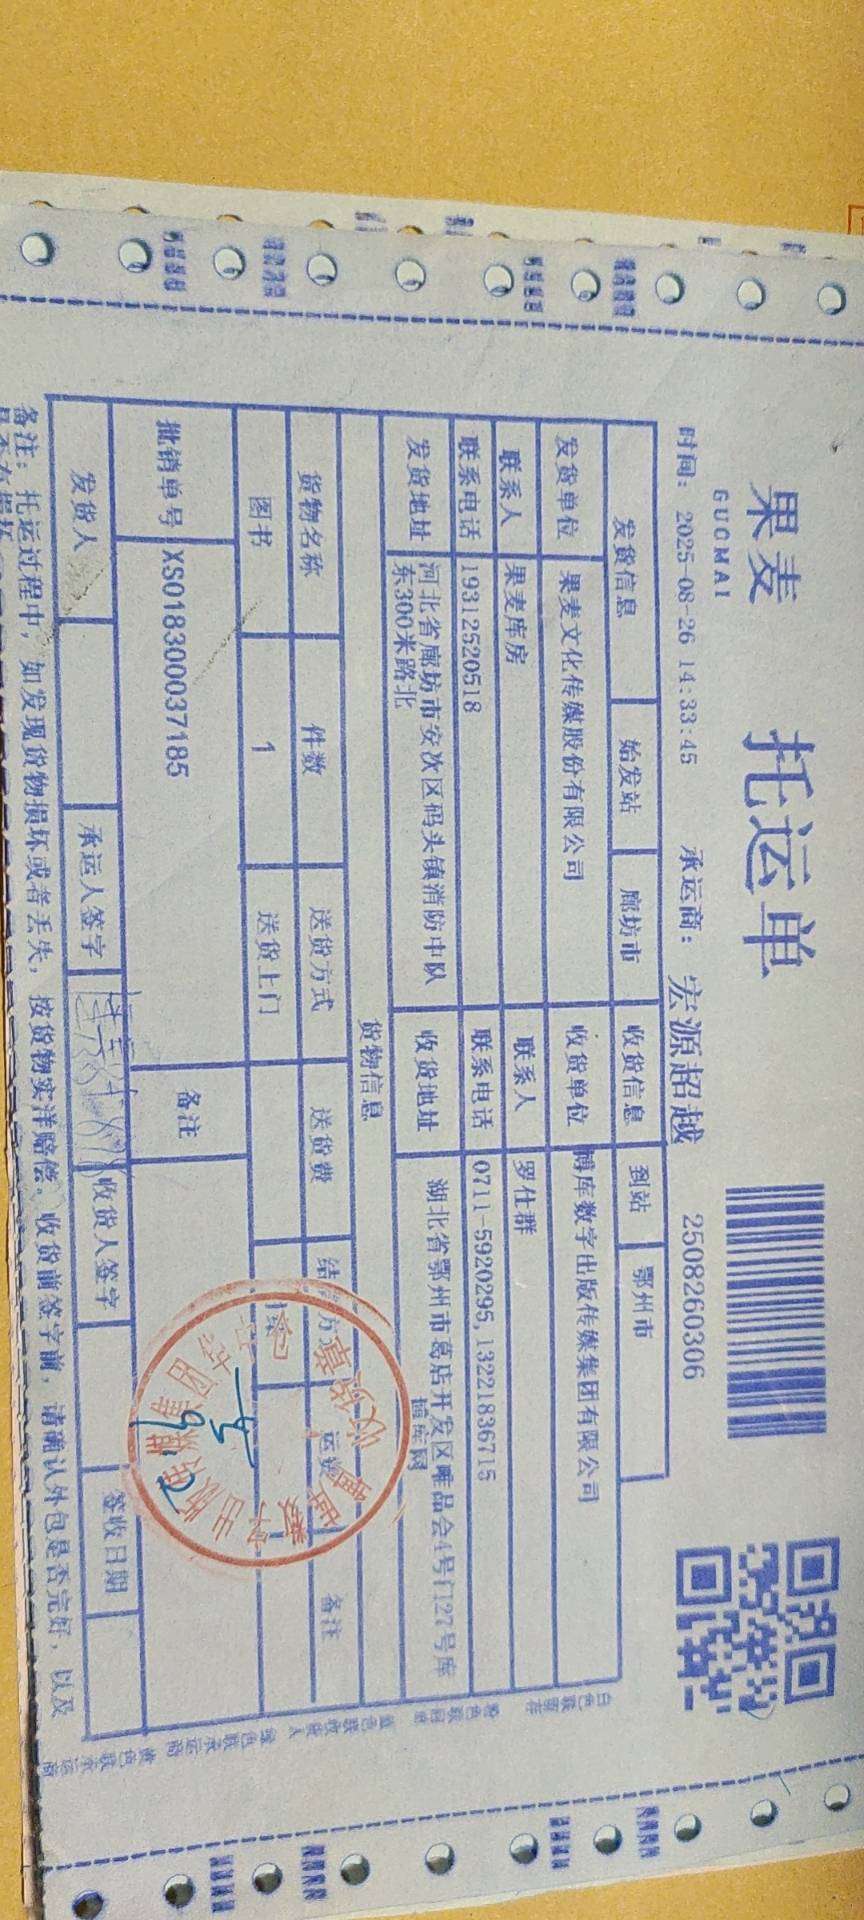 果麦
GUOMAI
托运单
时间: 2025-08-26 14:33:45
承运商: 宏源超越
2508260306
发货信息 始发站 廊坊市 收货信息 到站 鄂州市
发货单位 果麦文化传媒股份有限公司 收货单位 博库数字出版传媒集团有限公司
联系人 果麦库房 联系人 罗仕群
联系电话 19312520518 联系电话 0711-5920295,13221836715
发货地址 河北省廊坊市安次区码头镇消防中队
东300米路北
收货地址 湖北省鄂州市葛店开发区唯品会4号门127号库
博库网
货物信息
货物名称 件数 送货方式 送货费 结 方 运费 备注
图书 1 送货上门
批销单号 XS018300037185 备注
发货人 承运人签字 收货人签字 签收日期
备注: 托运过程中, 如发现货物损坏或者丢失, 按货物实洋赔偿。收货前签字前, 请确认外包是否完好, 以及